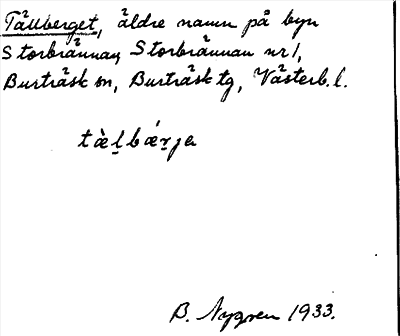 Tållberget, äldre namn på byn
Storbrännan, Storbrännan nr 1,
Burträsk sn, Burträsk tg, Västerb. l.
tàl̠bǽr̠ja
B. Nygren 1933.